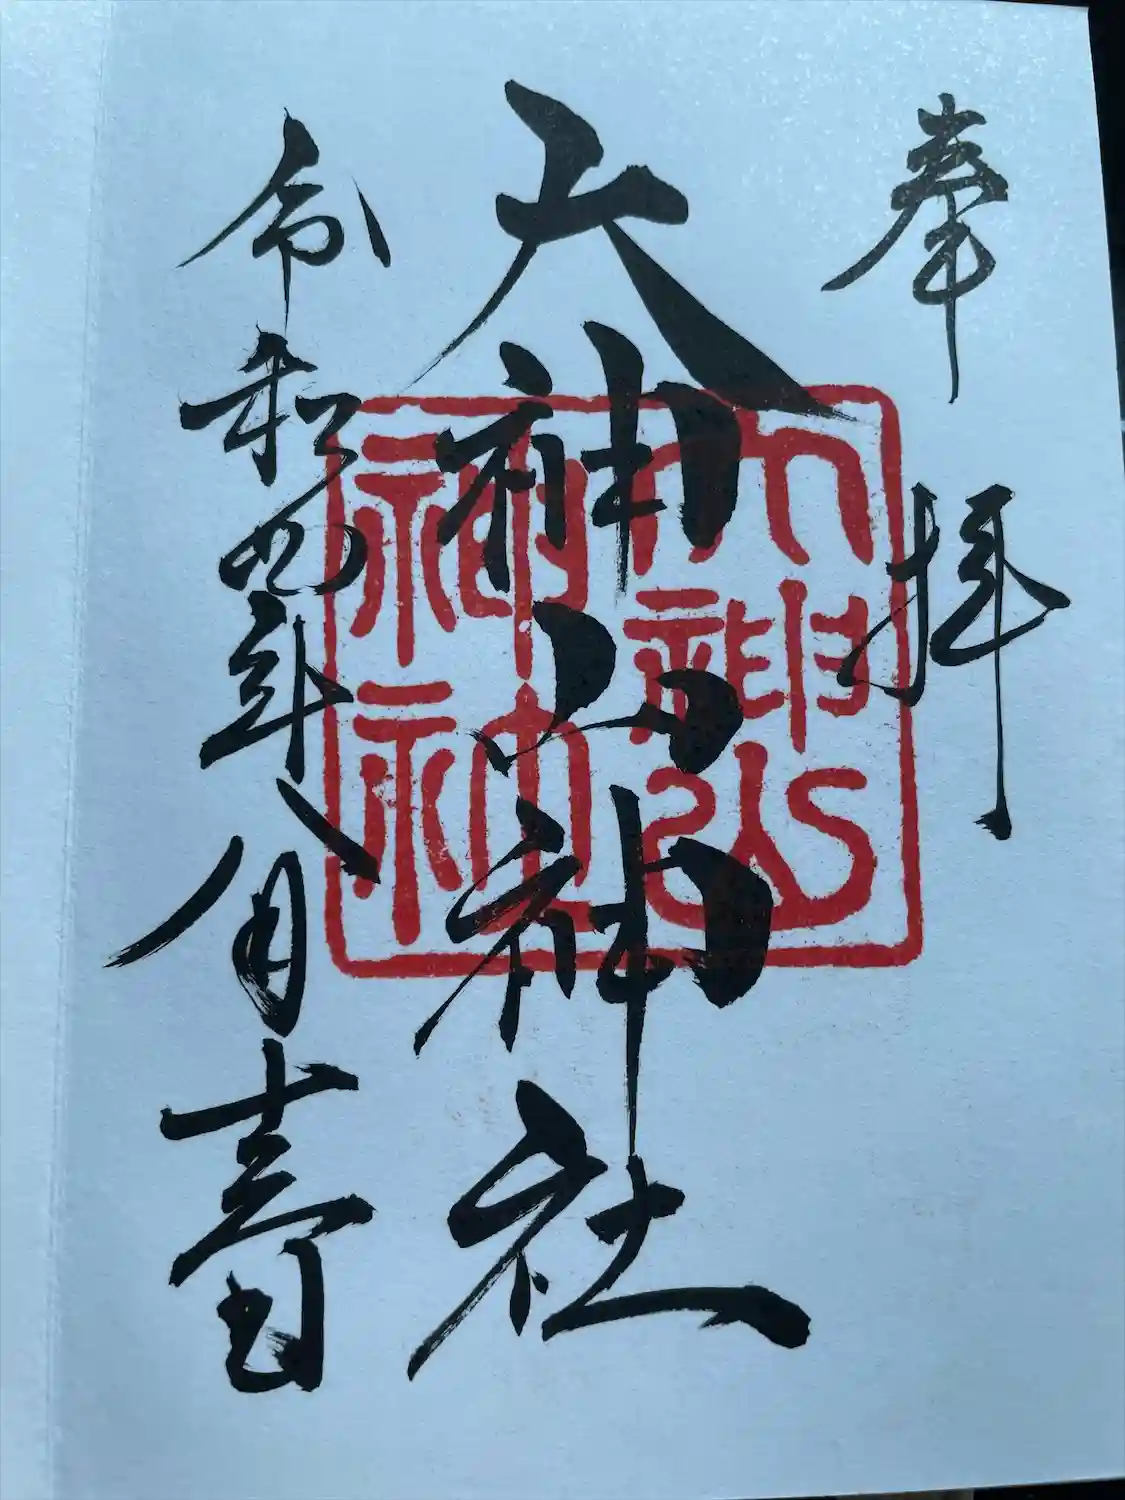 奉拝
大神山神社
大神山
神社
令和四年八月十五日